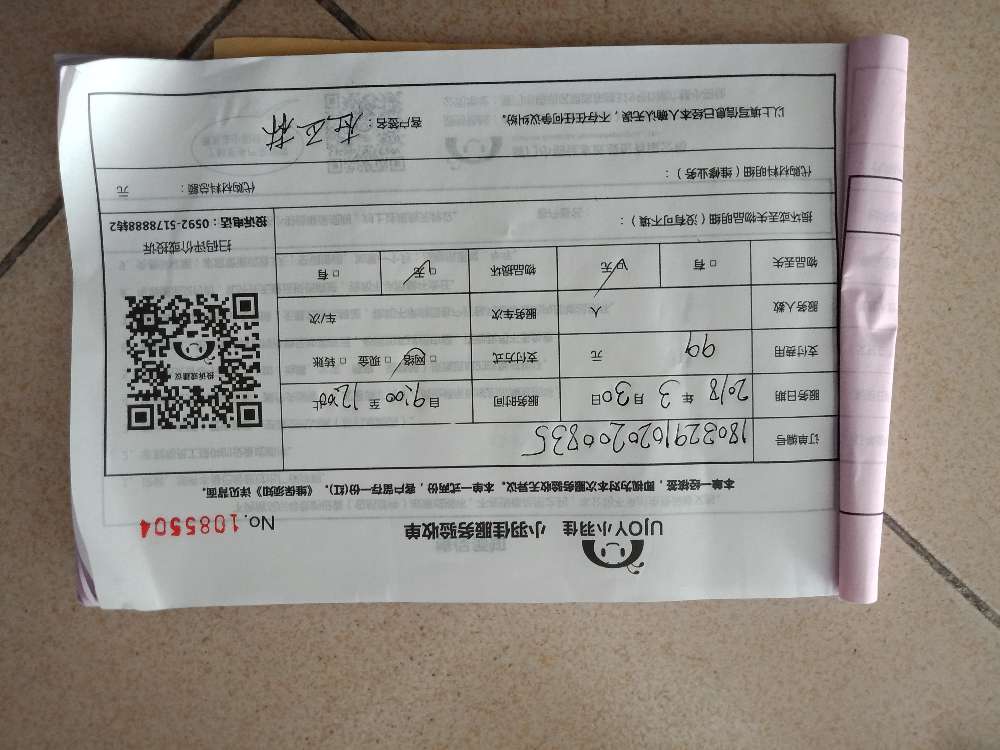 UJOY小羽佳 小羽佳服务验收单
No.1085504
本单一经核签,即视为对本次服务验收无异议。本单一式两份,客户留存一份(红)。《维保须知》详见背面。
订单编号 180329102020200835
服务日期 2018 年 3 月 30 日 服务时间 自 9:00 至 12:00 止
支付费用 99 元 支付方式 网络 □ 现金 □ 转账
服务人数 人 服务车次 车/次
物品丢失 □ 有 无 物品损坏 无 □ 有
损坏或丢失物品明细(没有可不填):
投诉或建议
扫码评价或投诉
投诉电话:0592-5178888转2
代购材料明细(维修业务): 代购材料总额: 元
以上填写信息已经本人确认无误,不存在任何争议纠纷。 客户签名: